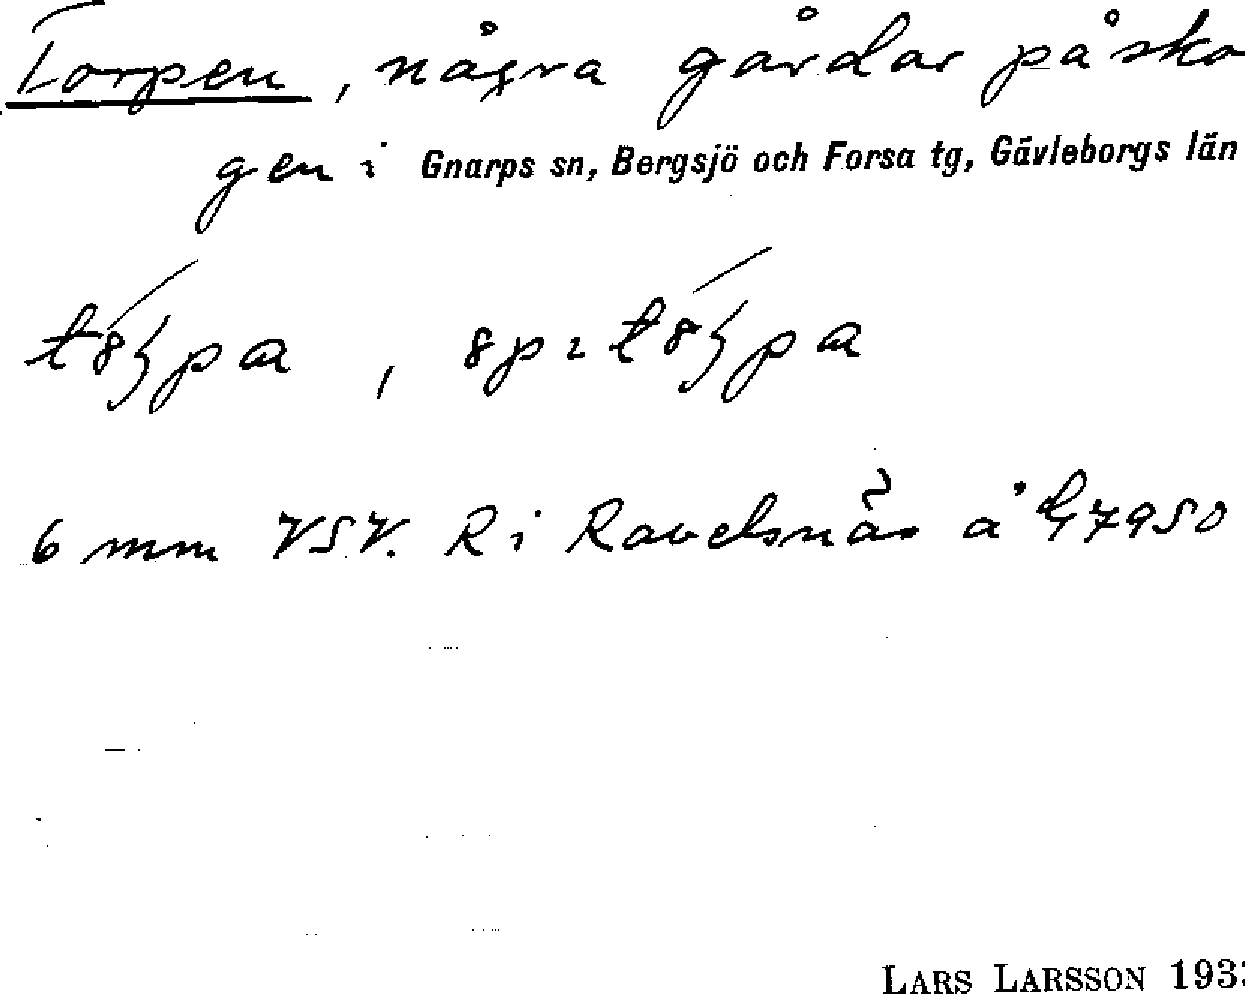 Torpen, några gårdar på sko
gen i Gnarps sn, Bergsjö och Forsa tg, Gävleborgs län
6 mm VSV. R i Ravelsnäs å G7950
LARS LARSSON 193